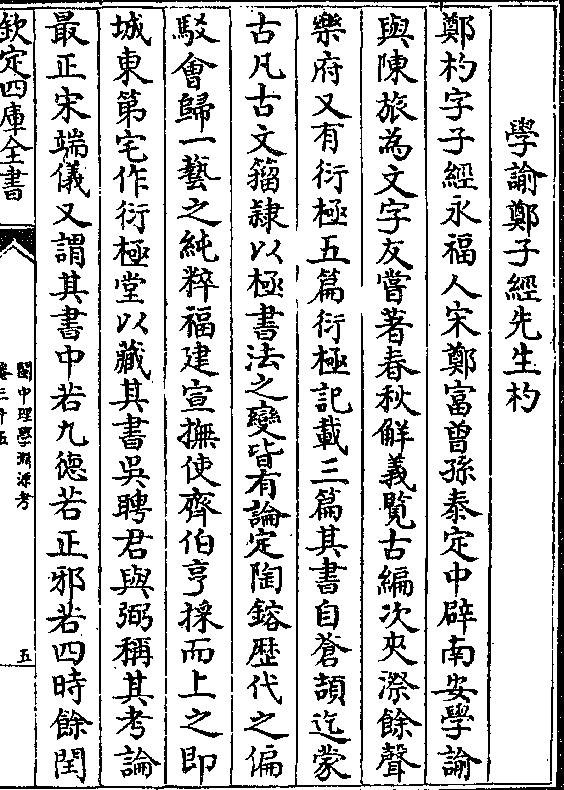 學諭鄭子經先生杓
鄭杓字子經永福人宋鄭富曾孫泰定中辟南安學諭
與陳旅為文字友嘗著春秋解義覽古編次夾漈餘聲
樂府又有衍極五篇衍極記載三篇其書自蒼頡迄蒙
古凡古文籀隸以極書法之變皆有論定陶鎔歴代之偏
駁會歸一藝之純粹福建宣撫使齊伯亨採而上之即
城東第宅作衍極堂以藏其書吳聘君與弼稱其考論
最正宋端儀又謂其書中若九德若正邪若四時餘閏
欽定四庫全書
閩中理學淵源考
卷三十五
五